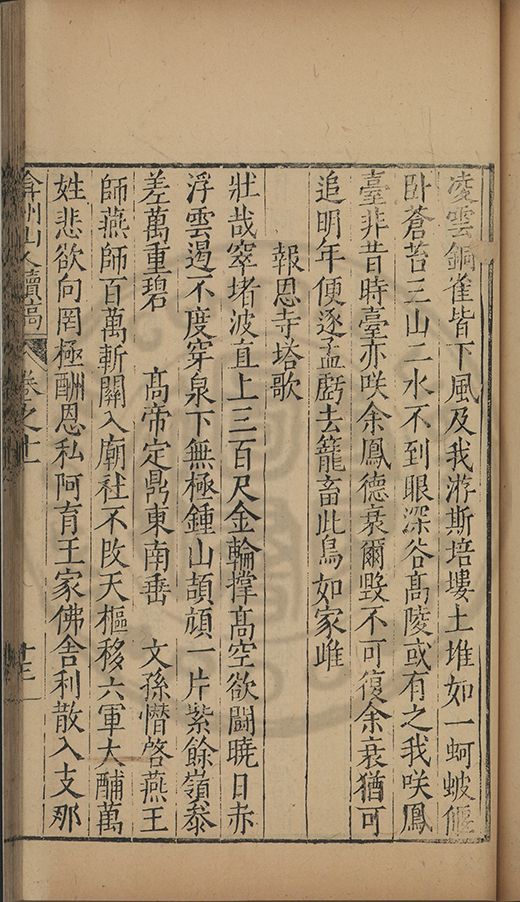 凌雲銅雀皆下風及我游斯培塿土堆如一蚵蚾偃
卧蒼苔三山二水不到眼深谷髙陵或有之我咲鳳
臺非昔時臺亦咲余鳳德衰爾毀不可復余衰猶可
追明年便逐孟虧去籠畜此鳥如家雌
報恩寺塔歌
壯哉窣堵波直上三百尺金輪撑髙空欲鬪曉日赤
浮雲遏不度穿泉下無極鍾山頡頏一片紫餘嶺叅
差萬重碧 髙帝定鼎東南垂 文孫㦧啓燕王
師燕師百萬斬關入廟社不改天樞移六軍大酺萬
姓悲欲向罔極酬恩私阿育王家佛舍利散入支那
弇州山人續稿 卷之廿 十三